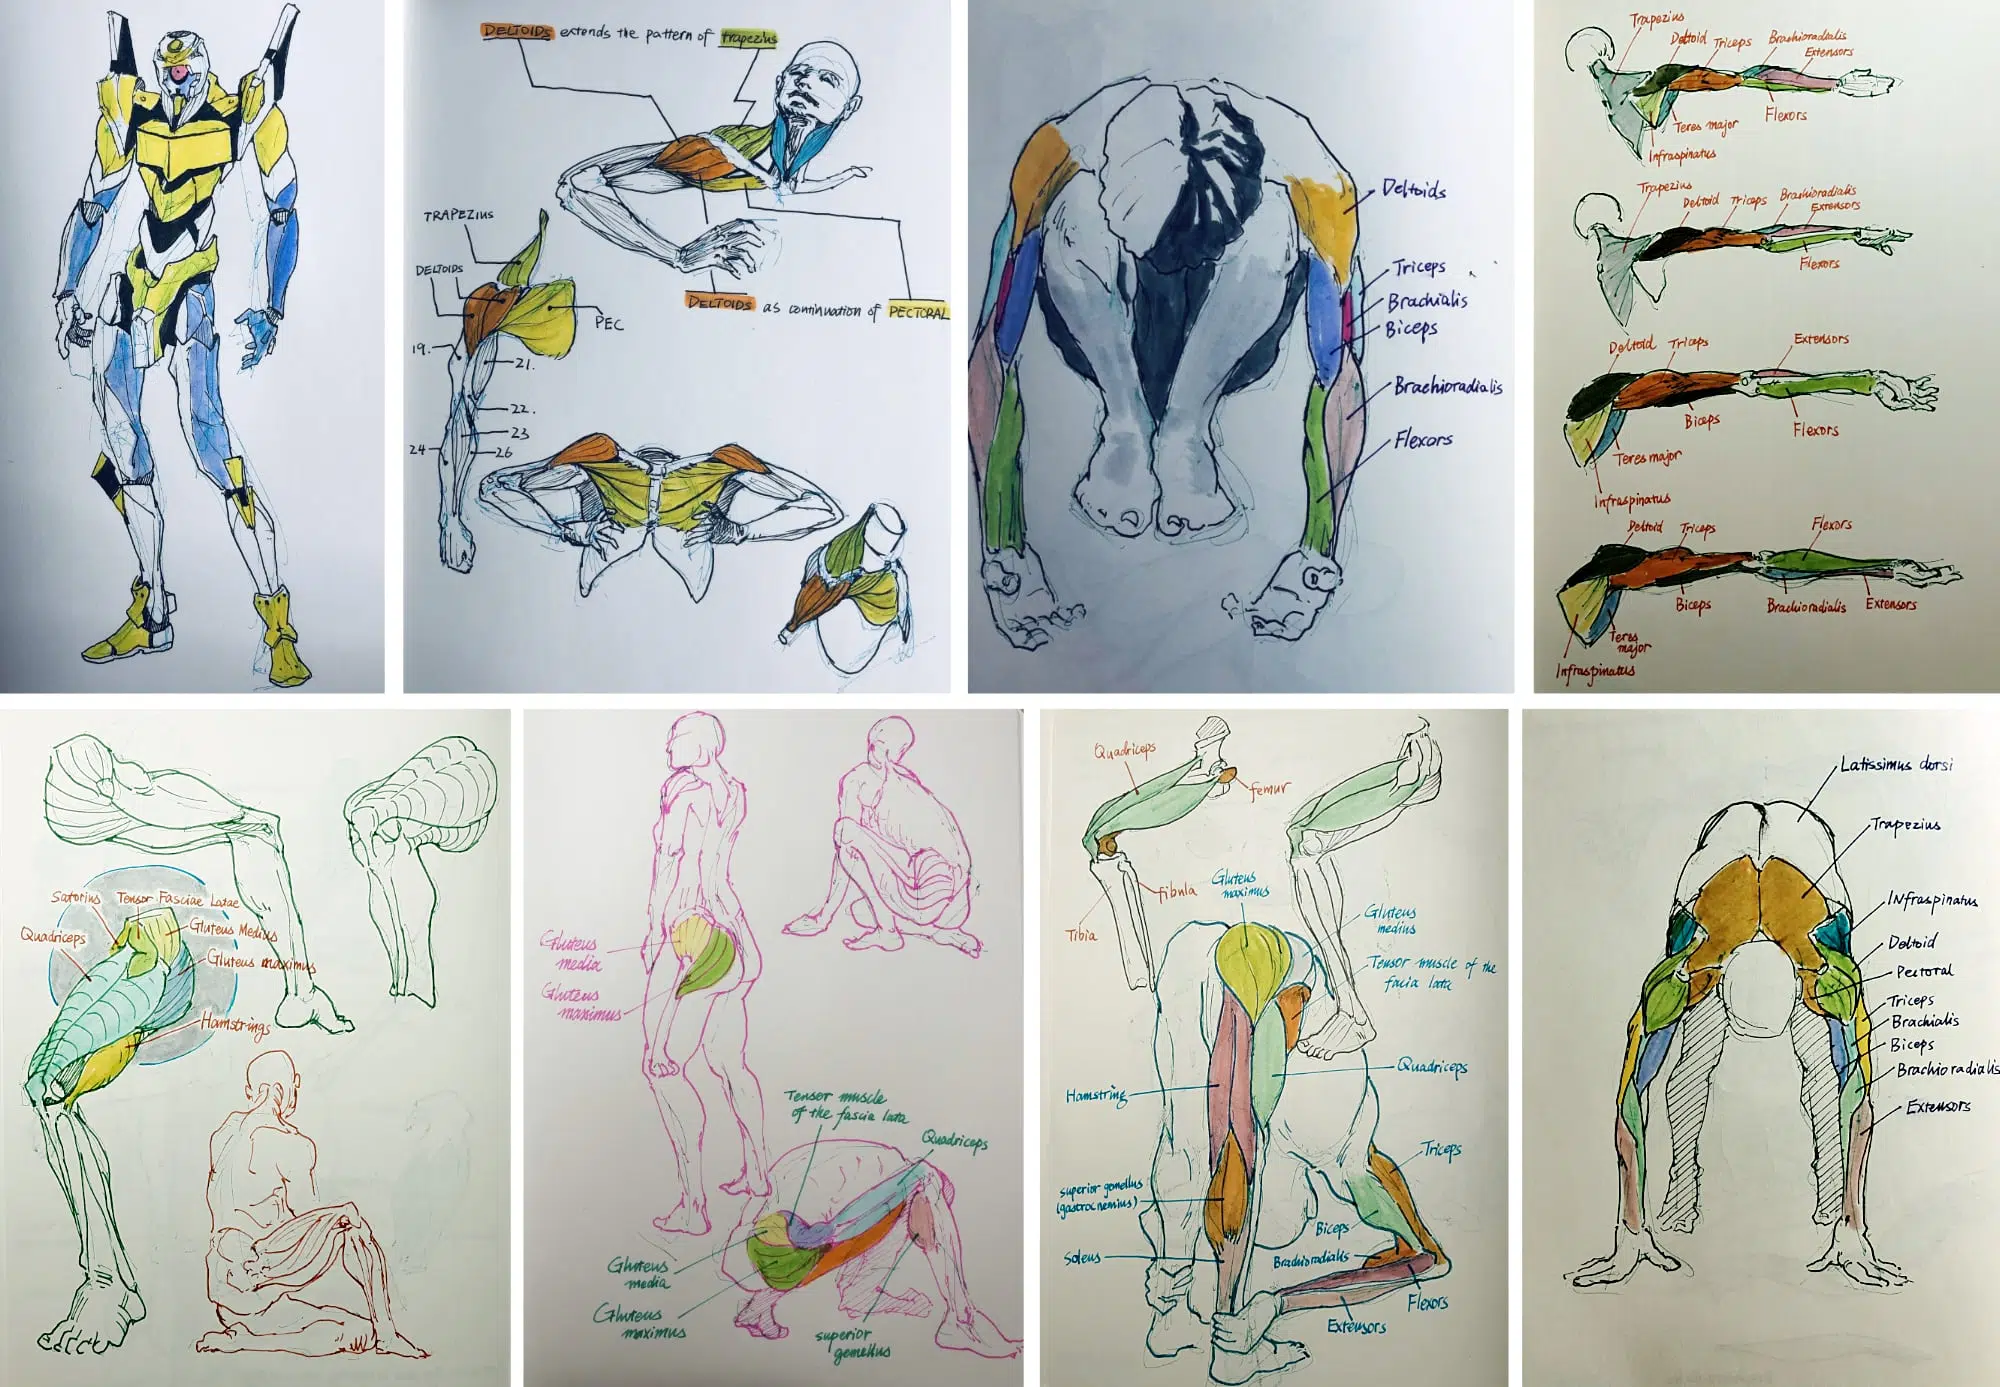 DELTOIDS extends the pattern of trapezius
TRAPEZIUS
DELTOIDS
PEC
DELTOIDS as continuation of PECTORAL
19.
21.
22.
23
24
26
Deltoids
Triceps
Brachialis
Biceps
Brachioradialis
Flexors
Trapezius
Deltoid
Triceps
Brachioradialis
Extensors
Flexors
Teres major
Infraspinatus
Trapezius
Deltoid
Triceps
Brachioradialis
Extensors
Flexors
Deltoid
Triceps
Extensors
Biceps
Flexors
Teres major
Infraspinatus
Deltoid
Triceps
Flexors
Biceps
Brachioradialis
Extensors
Teres
major
Infraspinatus
Satorius
Tensor Fasciae Latae
Quadriceps
Gluteus Medius
Gluteus maximus
Hamstrings
Gluteus
media
Gluteus
maximus
Tensor muscle
of the fascia lata
Quadriceps
Gluteus
media
Gluteus
maximus
superior
gemellus
Quadriceps
femur
fibula
Tibia
Gluteus
maximus
Gluteus
medius
Tensor muscle of the
facia lata
Hamstring
Quadriceps
superior gemellus
(gastrocnemius)
Triceps
Biceps
Soleus
Brachioradialis
Flexors
Extensors
Latissimus dorsi
Trapezius
Infraspinatus
Deltoid
Pectoral
Triceps
Brachialis
Biceps
Brachioradialis
Extensors